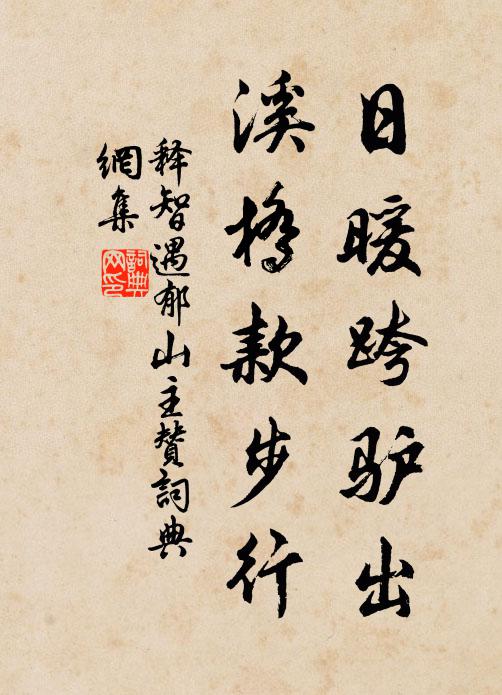 日暖跨驴出
溪橋款步行
释智遇郁山主赞詞典
網集
詞典
网印